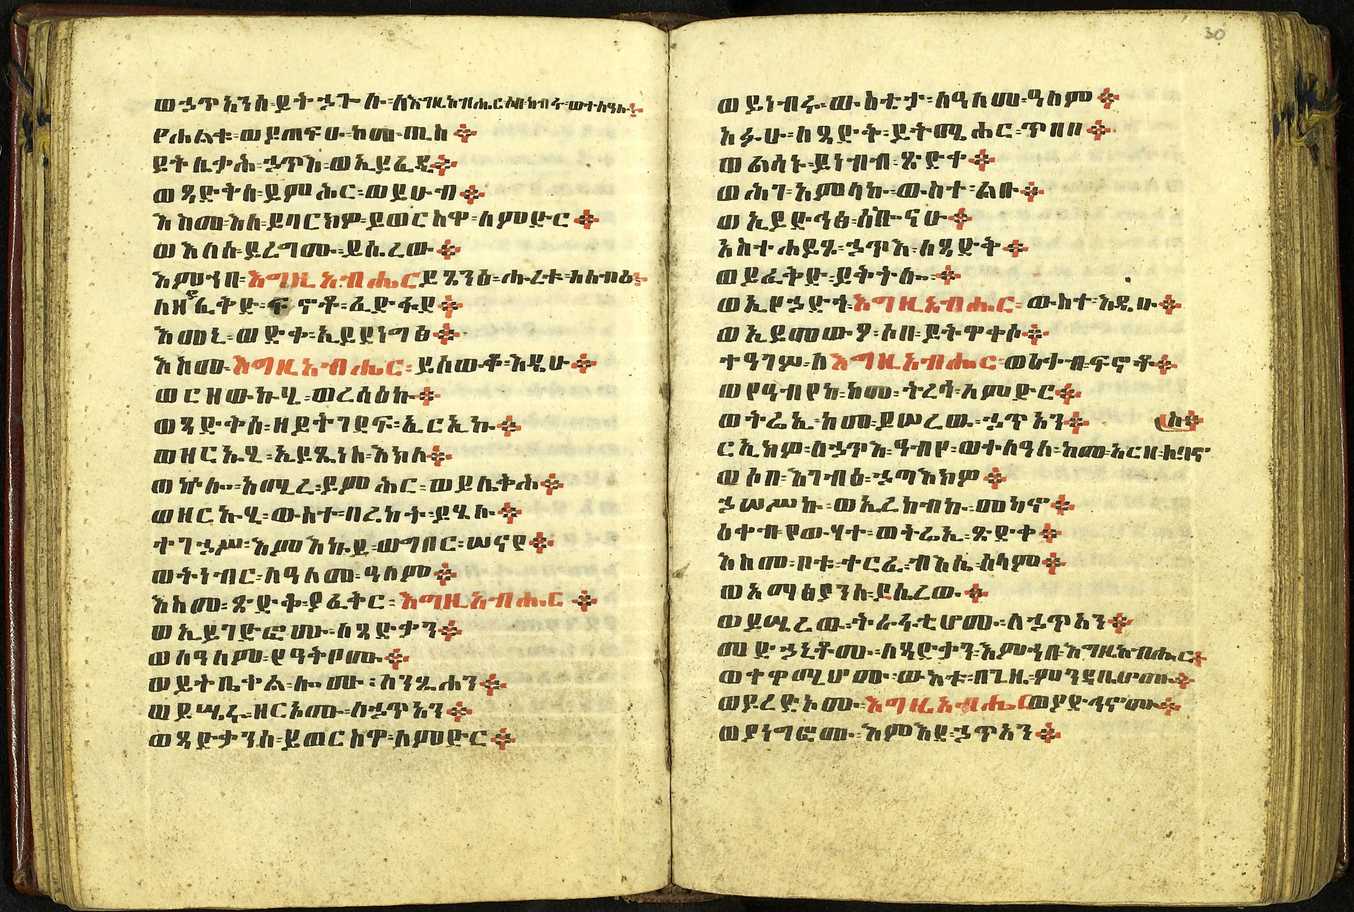 ወኃጥኣንሰ፡ይትኃጐሉ፡ለእግዚአብሔር፡ሶበ፡ከብሩ፡ወተለዓሉ፨
የሐልቁ፡ወይጠፍኡ፡ከመ፡ጢስ፨
ይትሌቃሕ፡ኃጥእ፡ወኢይፈዲ፨
ወጻድቅሰ፡ይምሕር፡ወይሁብ፨
እስመ፡እለ፡ይባርክዎ፡ይወርስዋ፡ለምድር፨
ወእለሰ፡ይረግሙ፡ይሤረው፨
እምኀበ፡እግዚአብሔር፡ይጸንዕ፡ሑረቱ፡ለሰብእ፨
ለዘ፡ይፈቅድ፡ፍኖቶ፡ፈድፋደ፨
እመኒ፡ወድቀ፡ኢይደነግፅ፨
እስመ፡እግዚአብሔር፡ይሰውቆ፡እዴሁ፨
ወርዘውኩሂ፡ወረሰዕኩ፨
ወጻድቅሰ፡ዘይትገደፍ፡ኢርኢኩ፨
ወዘርኡሂ፡ኢይጼነስ፡እክለ፨
ወኵሎ፡አሚረ፡ይምሕር፡ወይሌቅሕ፨
ወዘርኡሂ፡ውስተ፡በረከት፡ይሄሉ፨
ተገኃሥ፡እምእኩይ፡ወግበር፡ሠናየ፨
ወትነብር፡ለዓለመ፡ዓለም፨
እስመ፡ጽድቀ፡ያፈቅር፡እግዚአብሔር፨
ወኢይገድፎሙ፡ለጻድቃን፨
ወለዓለም፡የዓቅቦሙ፨
ወይትቤቀል፡ሎሙ፡ለንጹሐን፨
ወይሤሩ፡ዘርኦሙ፡ለኃጥኣን፨
ወጻድቃንሰ፡ይወርስዋ፡ለምድር፨
30
ወይነብሩ፡ውስቴታ፡ለዓለመ፡ዓለም፨
አፉሁ፡ለጻድቅ፡ይትሜሐር፡ጥበበ፨
ወልሳኑ፡ይነብብ፡ጽድቀ፨
ወሕገ፡አምላኩ፡ውስተ፡ልቡ፨
ወኢይድኅፅ፡ሰኰናሁ፨
አስተሐይጾ፡ኃጥእ፡ለጻድቅ፨
ወይፈቅድ፡ይቅትሎ፨
ወኢየኃድጎ፡እግዚአብሔር፡ውስተ፡እዴሁ፨
ወኢይመውዖ፡ሶበ፡ይትዋቀሶ፨
ተዓገሦ፡ለእግዚአብሔር፡ወዕቀብ፡ፍኖቶ፨
ወያዓብየከ፡ከመ፡ትረሳ፡ለምድር፨
ወትሬኢ፡ከመ፡ይሠረዉ፡ኃጥኣን፨
ርኢክዎ፡ለኃጥእ፡ዓብየ፡ወተለዓለ፡ከመ፡አርዘ፡ሊባኖስ፨
ወሶበ፡እገብእ፡ኃጣእክዎ፨
ኃሠሥኩ፡ወኢረከብኩ፡መካኖ፨
ዕቀብ፡የውሃተ፡ወትሬኢ፡ጽድቀ፨
እስመ፡ቦቱ፡ተርፈ፡ብእሴ፡ሰላም፨
ወአማፅያንሰ፡ይሤረው፨
ወይሤረዉ፡ትራፋቲሆሙ፡ለኃጥኣን፨
መድኃኒቶሙ፡ለጻድቃን፡እምኀበ፡እግዚአብሔር፨
ወተዋሚሆሙ፡ውእቱ፡በጊዜ፡ምንዳቤሆሙ፨
ወይረድኦሙ፡እግዚአብሔር፡ወያድኅኖሙ፨
ወያነግፎሙ፡እምእደ፡ኃጥኣን፨